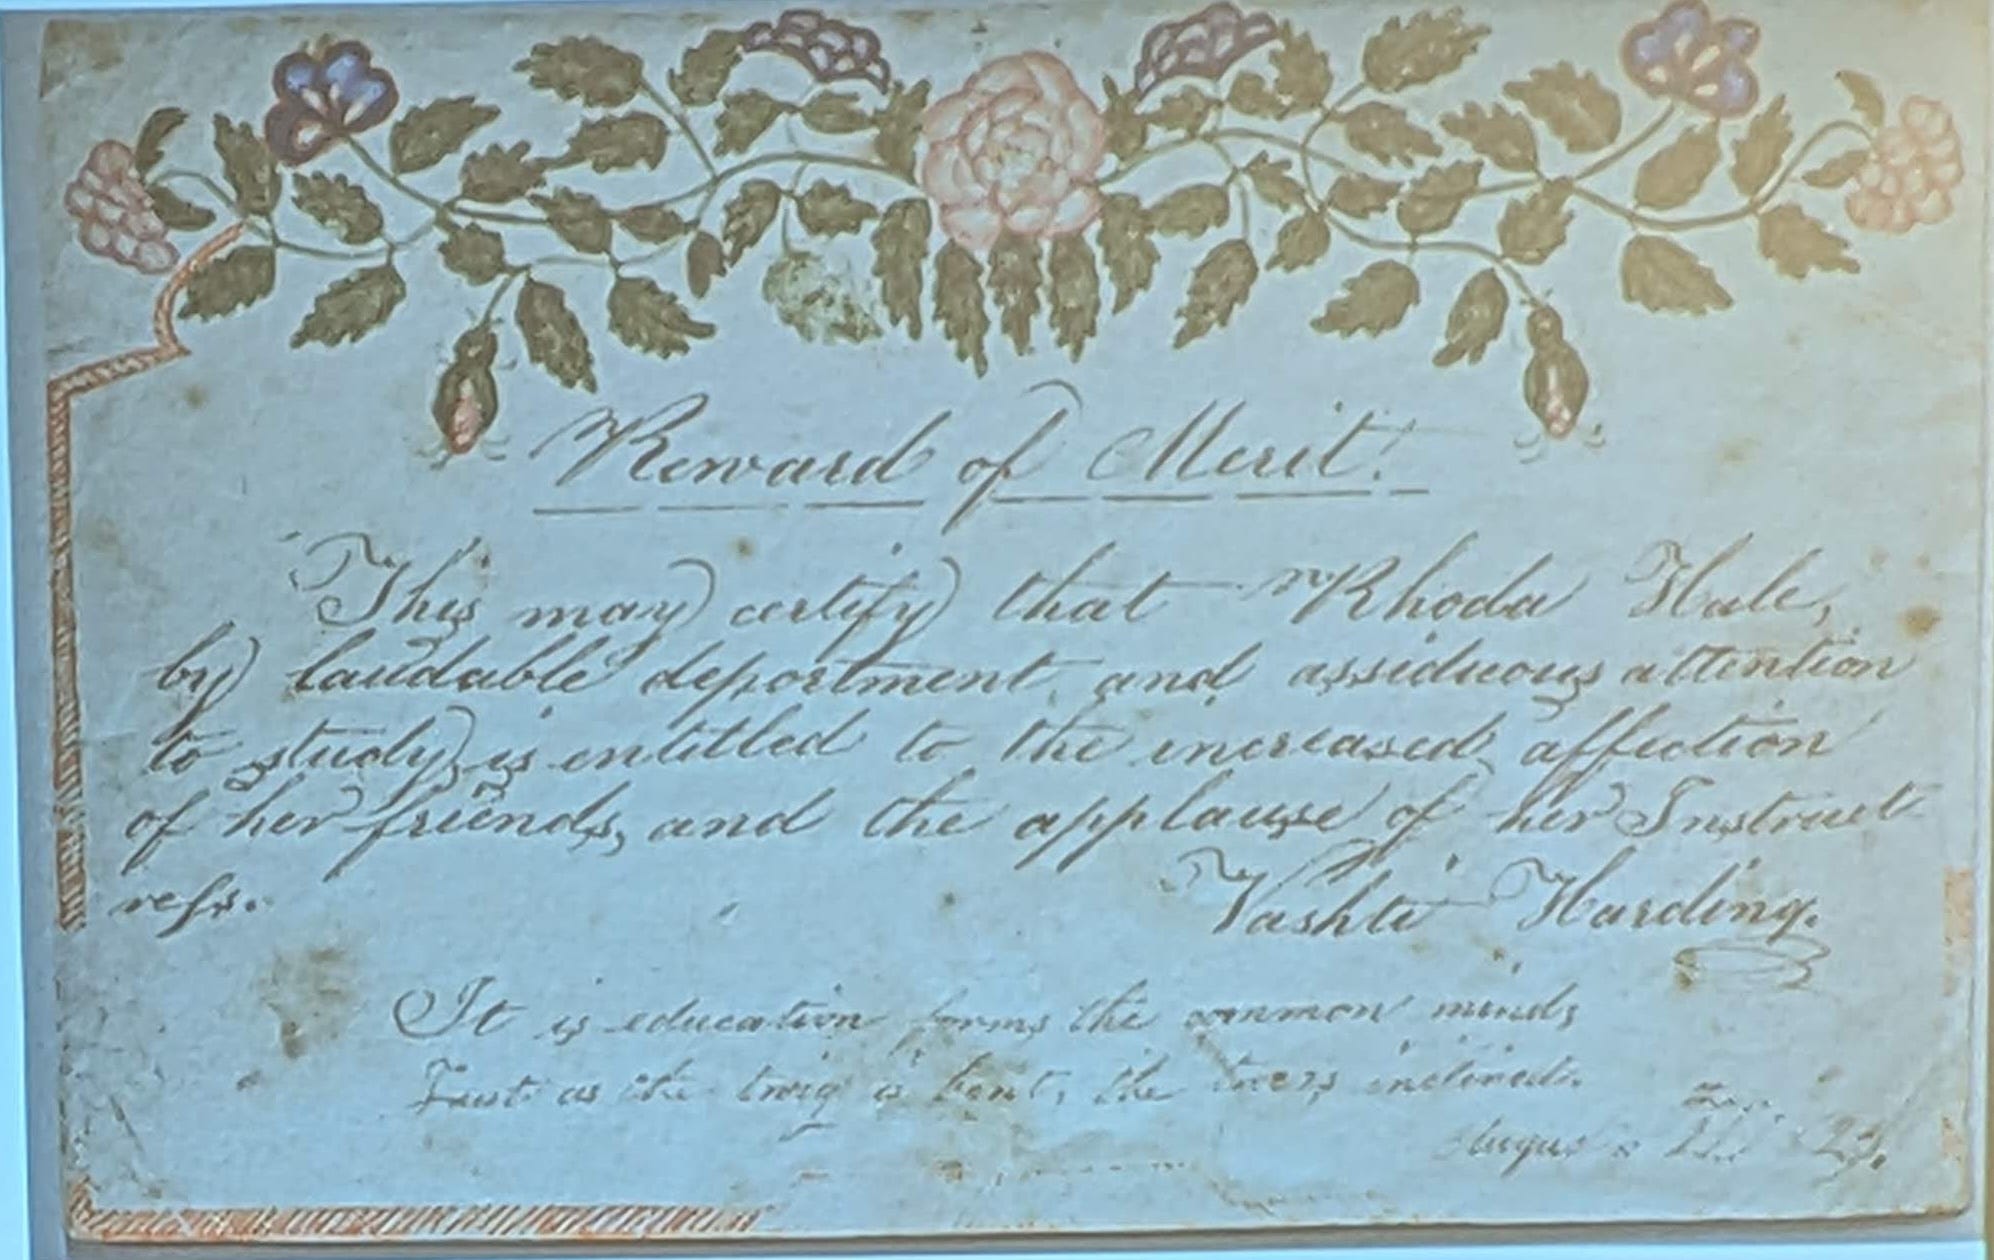 Reward of Merit!
This may certify that Rhoda Hale,
by laudable deportment and assiduous attention
to study, is entitled to the increased affection
of her friends, and the applause of her Instruct
ress.
Vashti Harding.
It is education forms the common mind;
Just as the twig is bent, the tree's inclined.
August